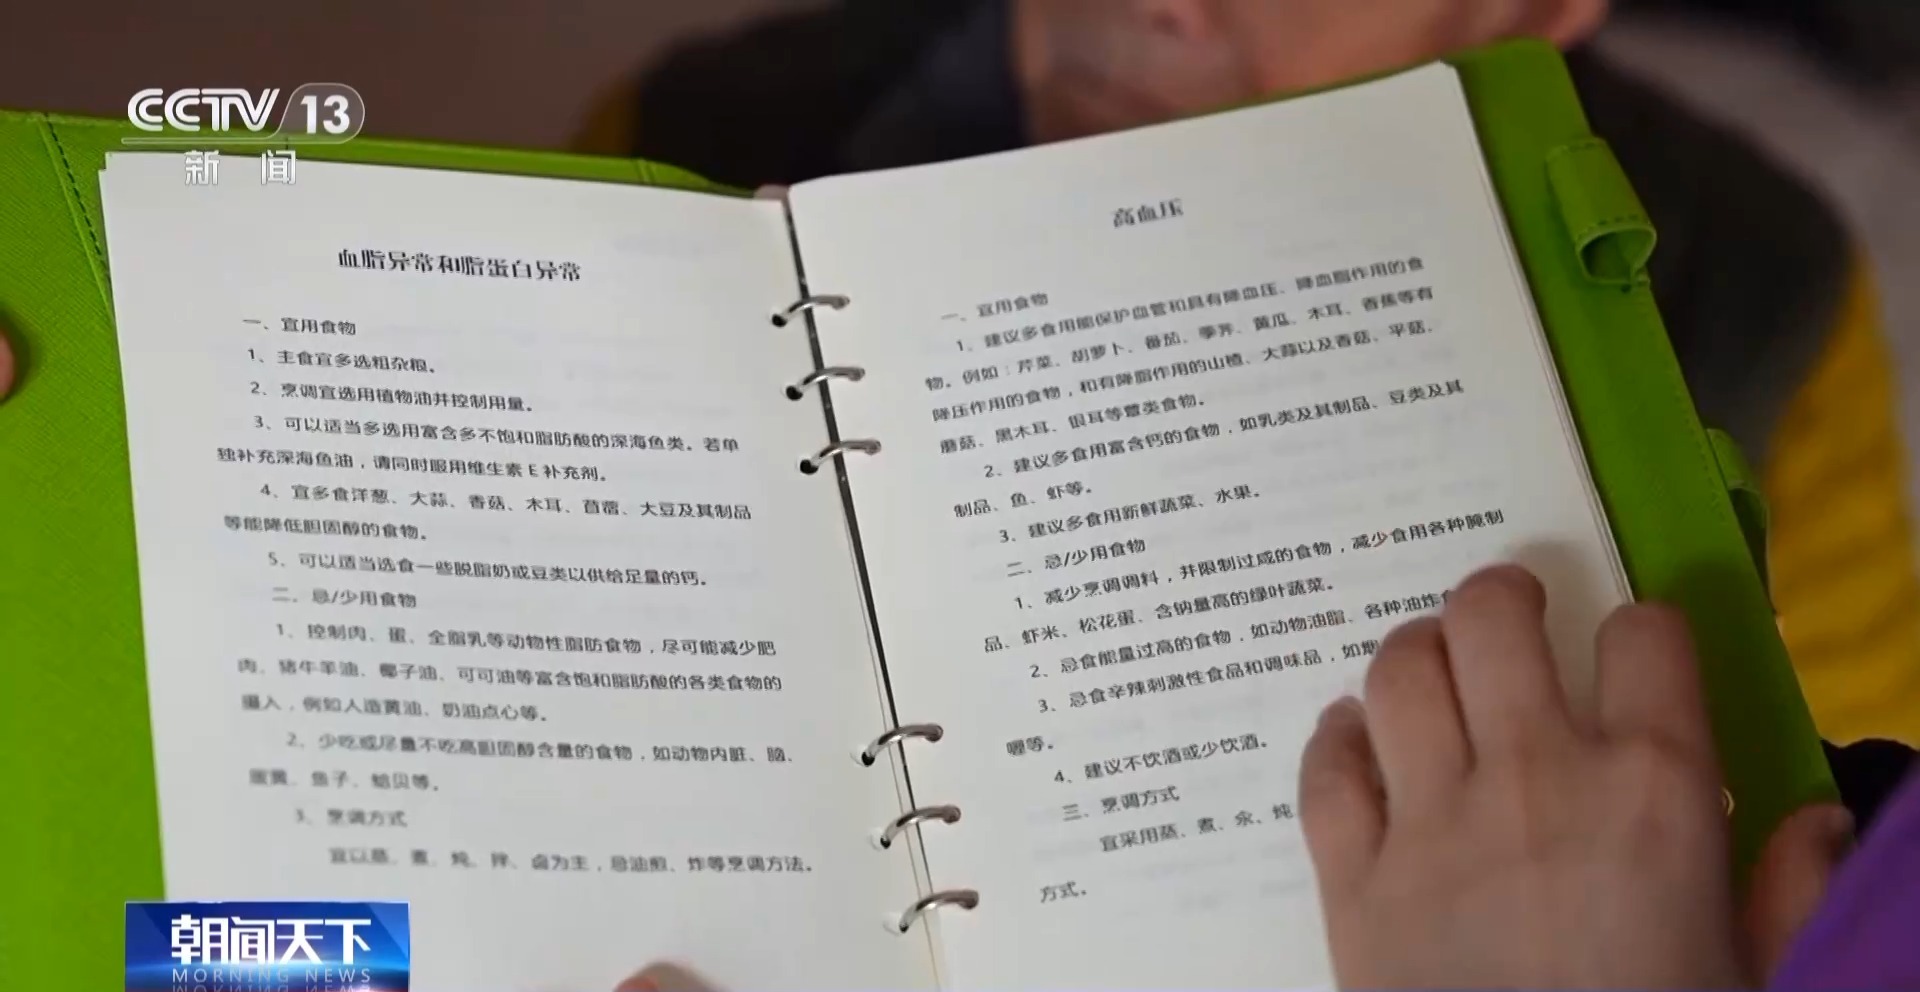 CCTV 13
新闻
血脂异常和脂蛋白异常
一、宜用食物
1、主食宜多选粗杂粮。
2、烹调宜选用植物油并控制用量。
3、可以适当多选用富含多不饱和脂肪酸的深海鱼类。若单
独补充深海鱼油，请同时服用维生素E补充剂。
4、宜多食洋葱、大蒜、香菇、木耳、苜蓿、大豆及其制品
等能降低胆固醇的食物。
5、可以适当选食一些脱脂奶或豆类以供给足量的钙。
二、忌/少用食物
1、控制肉、蛋、全脂乳等动物性脂肪食物，尽可能减少肥
肉、猪牛羊油、椰子油、可可油等富含饱和脂肪酸的各类食物的
摄入，例如人造黄油、奶油点心等。
2、少吃或尽量不吃高胆固醇含量的食物，如动物内脏、脑、
蛋黄、鱼子、蛤贝等。
3、烹调方式
宜以蒸、煮、炖、拌、卤为主，忌油煎、炸等烹调方法。
高血压
一、宜用食物
1、建议多食用能保护血管和具有降血压、降血脂作用的食
物。例如：芹菜、胡萝卜、番茄、荸荠、黄瓜、木耳、香蕉等有
降压作用的食物，和有降脂作用的山楂、大蒜以及香菇、平菇、
蘑菇、黑木耳、银耳等蕈类食物。
2、建议多食用富含钙的食物，如乳类及其制品、豆类及其
制品、鱼、虾等。
3、建议多食用新鲜蔬菜、水果。
二、忌/少用食物
1、减少烹调调料，并限制过咸的食物，减少食用各种腌制
品、虾米、松花蛋、含钠量高的绿叶蔬菜。
2、忌食能量过高的食物，如动物油脂、各种油炸食
3、忌食辛辣刺激性食品和调味品，如烟
喱等。
4、建议不饮酒或少饮酒。
三、烹调方式
宜采用蒸、煮、汆、炖、
方式。
朝闻天下
MORNING NEWS